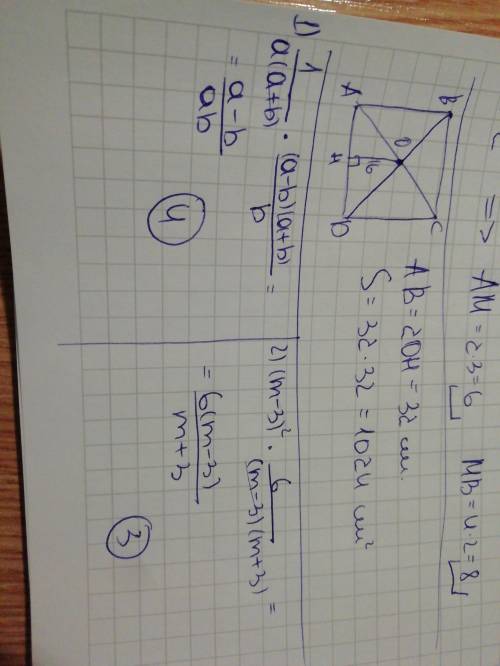 => AM = 2·3 = 6 MB = 4·2 = 8
B
C
O
16
A
H
D
AB = 2OH = 32 см.
S = 32·32 = 1024 см²
1) 1/a(a+b) · (a-b)(a+b)/b =
= a-b/ab
4
2) (m-3)² · 6/(m-3)(m+3) =
= 6(m-3)/m+3
3